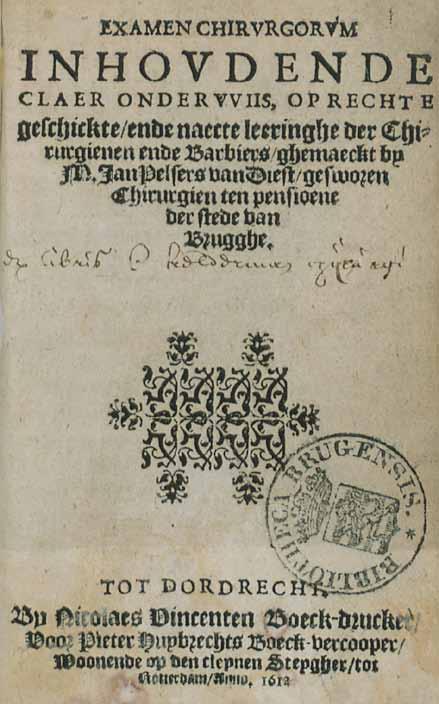 EXAMEN CHIRVRGORVM
INHOVDENDE
CLAER ONDERVVIIS, OPRECHTE
geschickte/ende naecte leeringhe der Chi-
rurgienen ende Barbiers/ghemaeckt by
M. Jan Pelsers van Diest/gesworen
Chirurgien ten pensioene
der stede van
Brugghe.
ex libris
BIBLIOTHECA BRUGENSIS.
TOT DORDRECHT,
By Nicolaes Vincenten Boeck-drucker/
Voor Pieter Huybrechts Boeck-vercooper/
Woonende op den cleynen Steygher/tot
Rotterdam/Anno. 1612